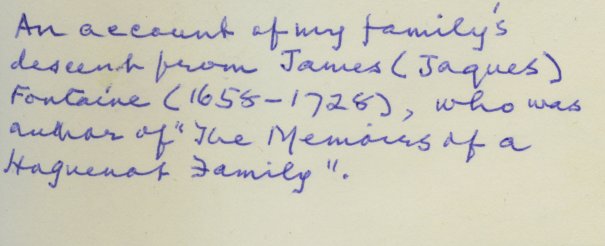 An account of my family's
descent from James (Jaques)
Fontaine (1658-1728), who was
author of "The Memoirs of a
Huguenot Family".